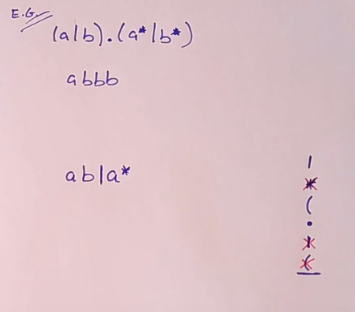 E.G.
(a|b).(a*|b*)
abbb
ab|a*
|
*
(
.
|
(